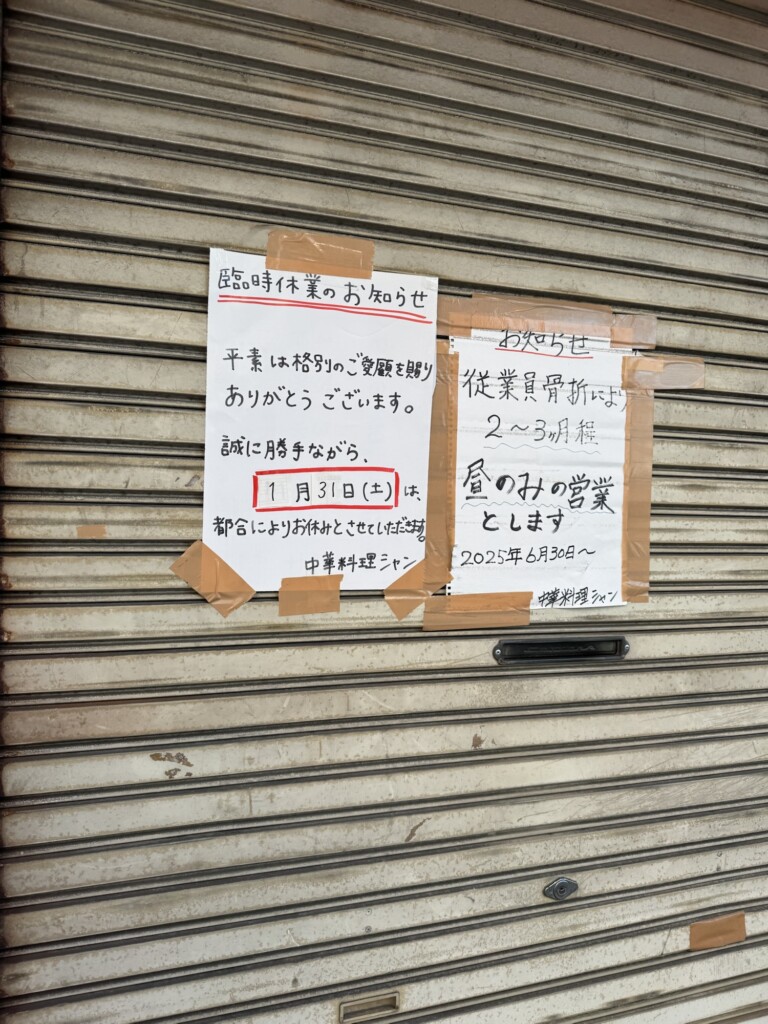 臨時休業のお知らせ
平素は格別のご愛顧を賜り
ありがとうございます。
誠に勝手ながら、
1月31日(土)は、
都合によりお休みとさせていただきます。
中華料理シャン
お知らせ
従業員骨折により
2～3ヶ月程
昼のみの営業
とします
2025年6月30日～
中華料理シャン